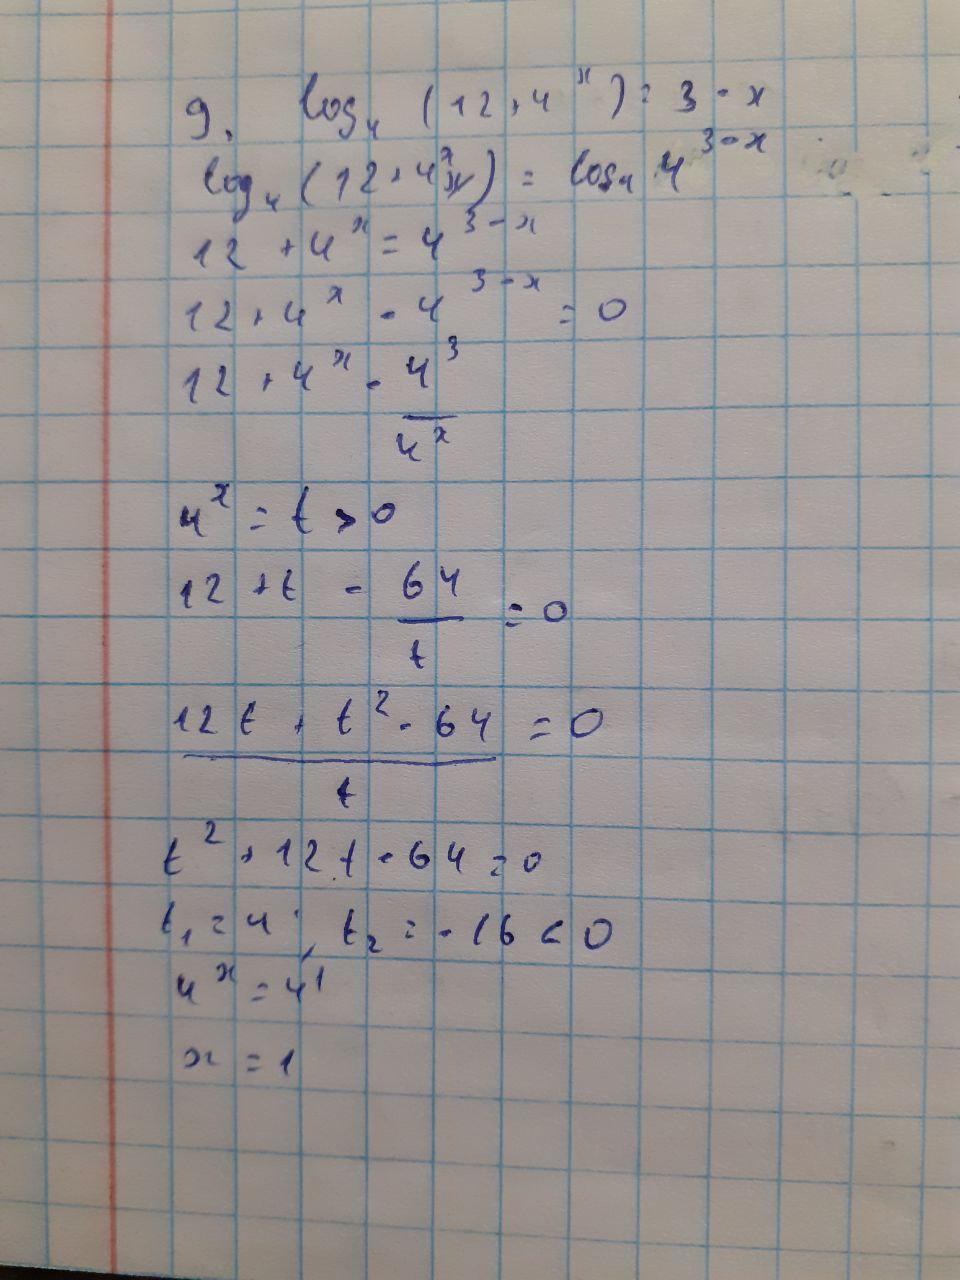 9. log₄ (12 + 4ˣ) = 3 - x
log₄ (12 + 4ˣ) = log₄ 4³⁻ˣ
12 + 4ˣ = 4³⁻ˣ
12 + 4ˣ - 4³⁻ˣ = 0
12 + 4ˣ - 4³/4ˣ
4ˣ = t > 0
12 + t - 64/t = 0
(12t + t² - 64)/t = 0
t² + 12t - 64 = 0
t₁ = 4 ; t₂ = -16 < 0
4ˣ = 4¹
x = 1